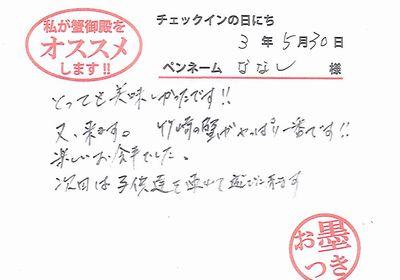 私が蟹御殿を
オススメ
します!!
チェックインの日にち
3年5月30日
ペンネーム ななし 様
とっても美味しかったです!!
又、来ます。竹崎の蟹がやっぱり一番です!!
楽しいお食事でした。
次回は子供達を連れて遊びに来ます
お墨
つき